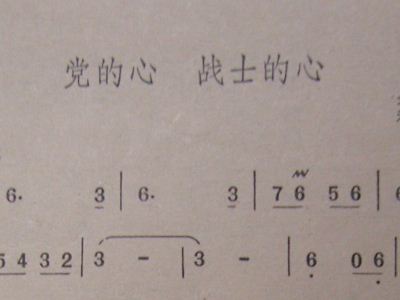 党的心 战士的心
6. 3 | 6. 3 | 7 6 5 6 |
5 4 3 2 | 3 - | 3 - | 6 0 6